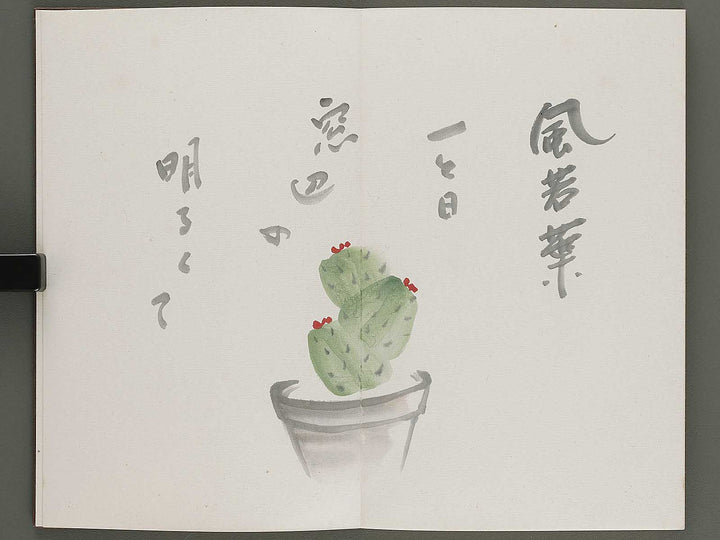 風若葉
一と日
窓辺の
明るくて